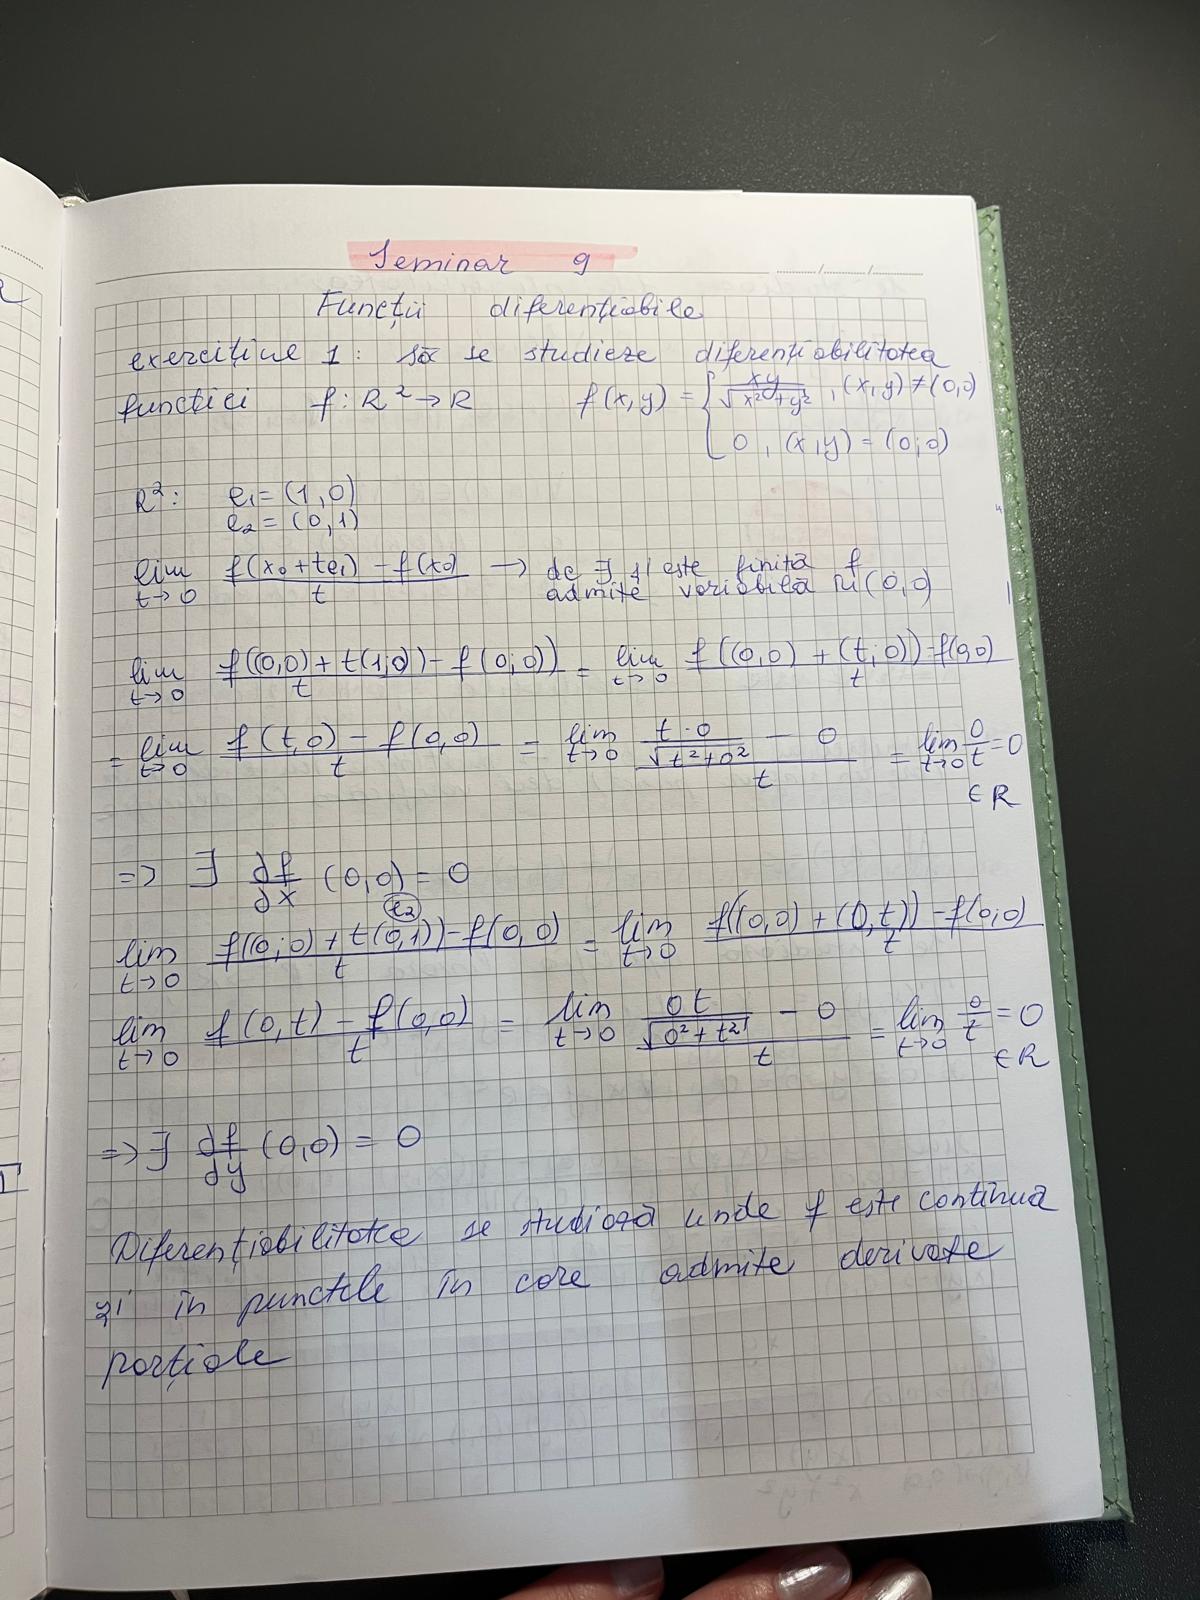 Seminar 9
Funcții diferențiabile
exercițiul 1: să se studieze diferențiabilitatea
funcției f: R² → R f(x,y) = { xy / √(x²+y²) , (x,y) ≠ (0,0)
0 , (x,y) = (0,0)
R²: e₁ = (1,0)
e₂ = (0,1)
lim t→0 (f(x₀+te₁) - f(x₀)) / t → dc ∃ și este finită f
admite variabilă în (0,0)
lim t→0 (f((0,0)+t(1,0)) - f(0,0)) / t = lim t→0 (f((0,0)+(t,0)) - f(0,0)) / t
= lim t→0 (f(t,0) - f(0,0)) / t = lim t→0 (t·0 / √(t²+0²) - 0) / t = lim t→0 0/t = 0
∈ R
=> ∃ ∂f/∂x (0,0) = 0
e₂
lim t→0 (f(0,0)+t(0,1)) - f(0,0) / t = lim t→0 (f((0,0)+(0,t)) - f(0,0)) / t
lim t→0 (f(0,t) - f(0,0)) / t = lim t→0 (0t / √(0²+t²) - 0) / t = lim t→0 0/t = 0
∈ R
=> ∃ ∂f/∂y (0,0) = 0
Diferențiabilitatea se studiază unde f este continuă
și în punctele în care admite derivate
parțiale